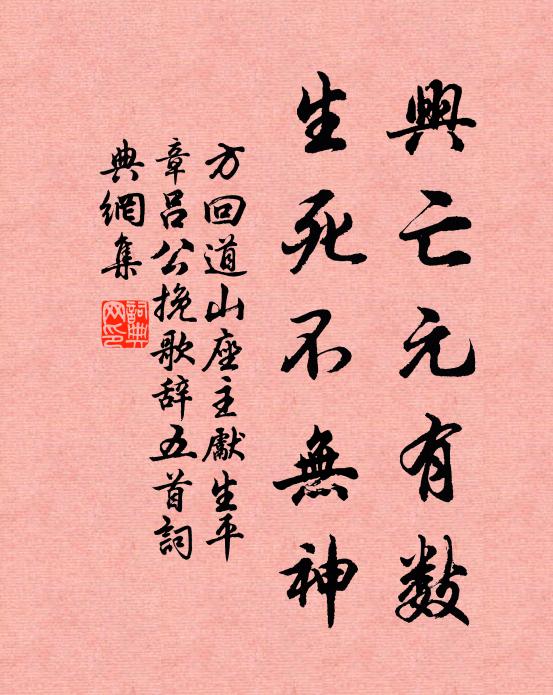 興亡元有數
生死不無神
方回道山座主獻生平
章呂公挽歌辞五首詞
典網集
詞典
网印